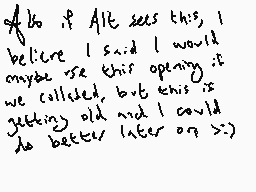 Also if Alt sees this, I
believe I said I would
maybe use this opening if
we collabed, but this is
getting old and I could
do better later on >:)